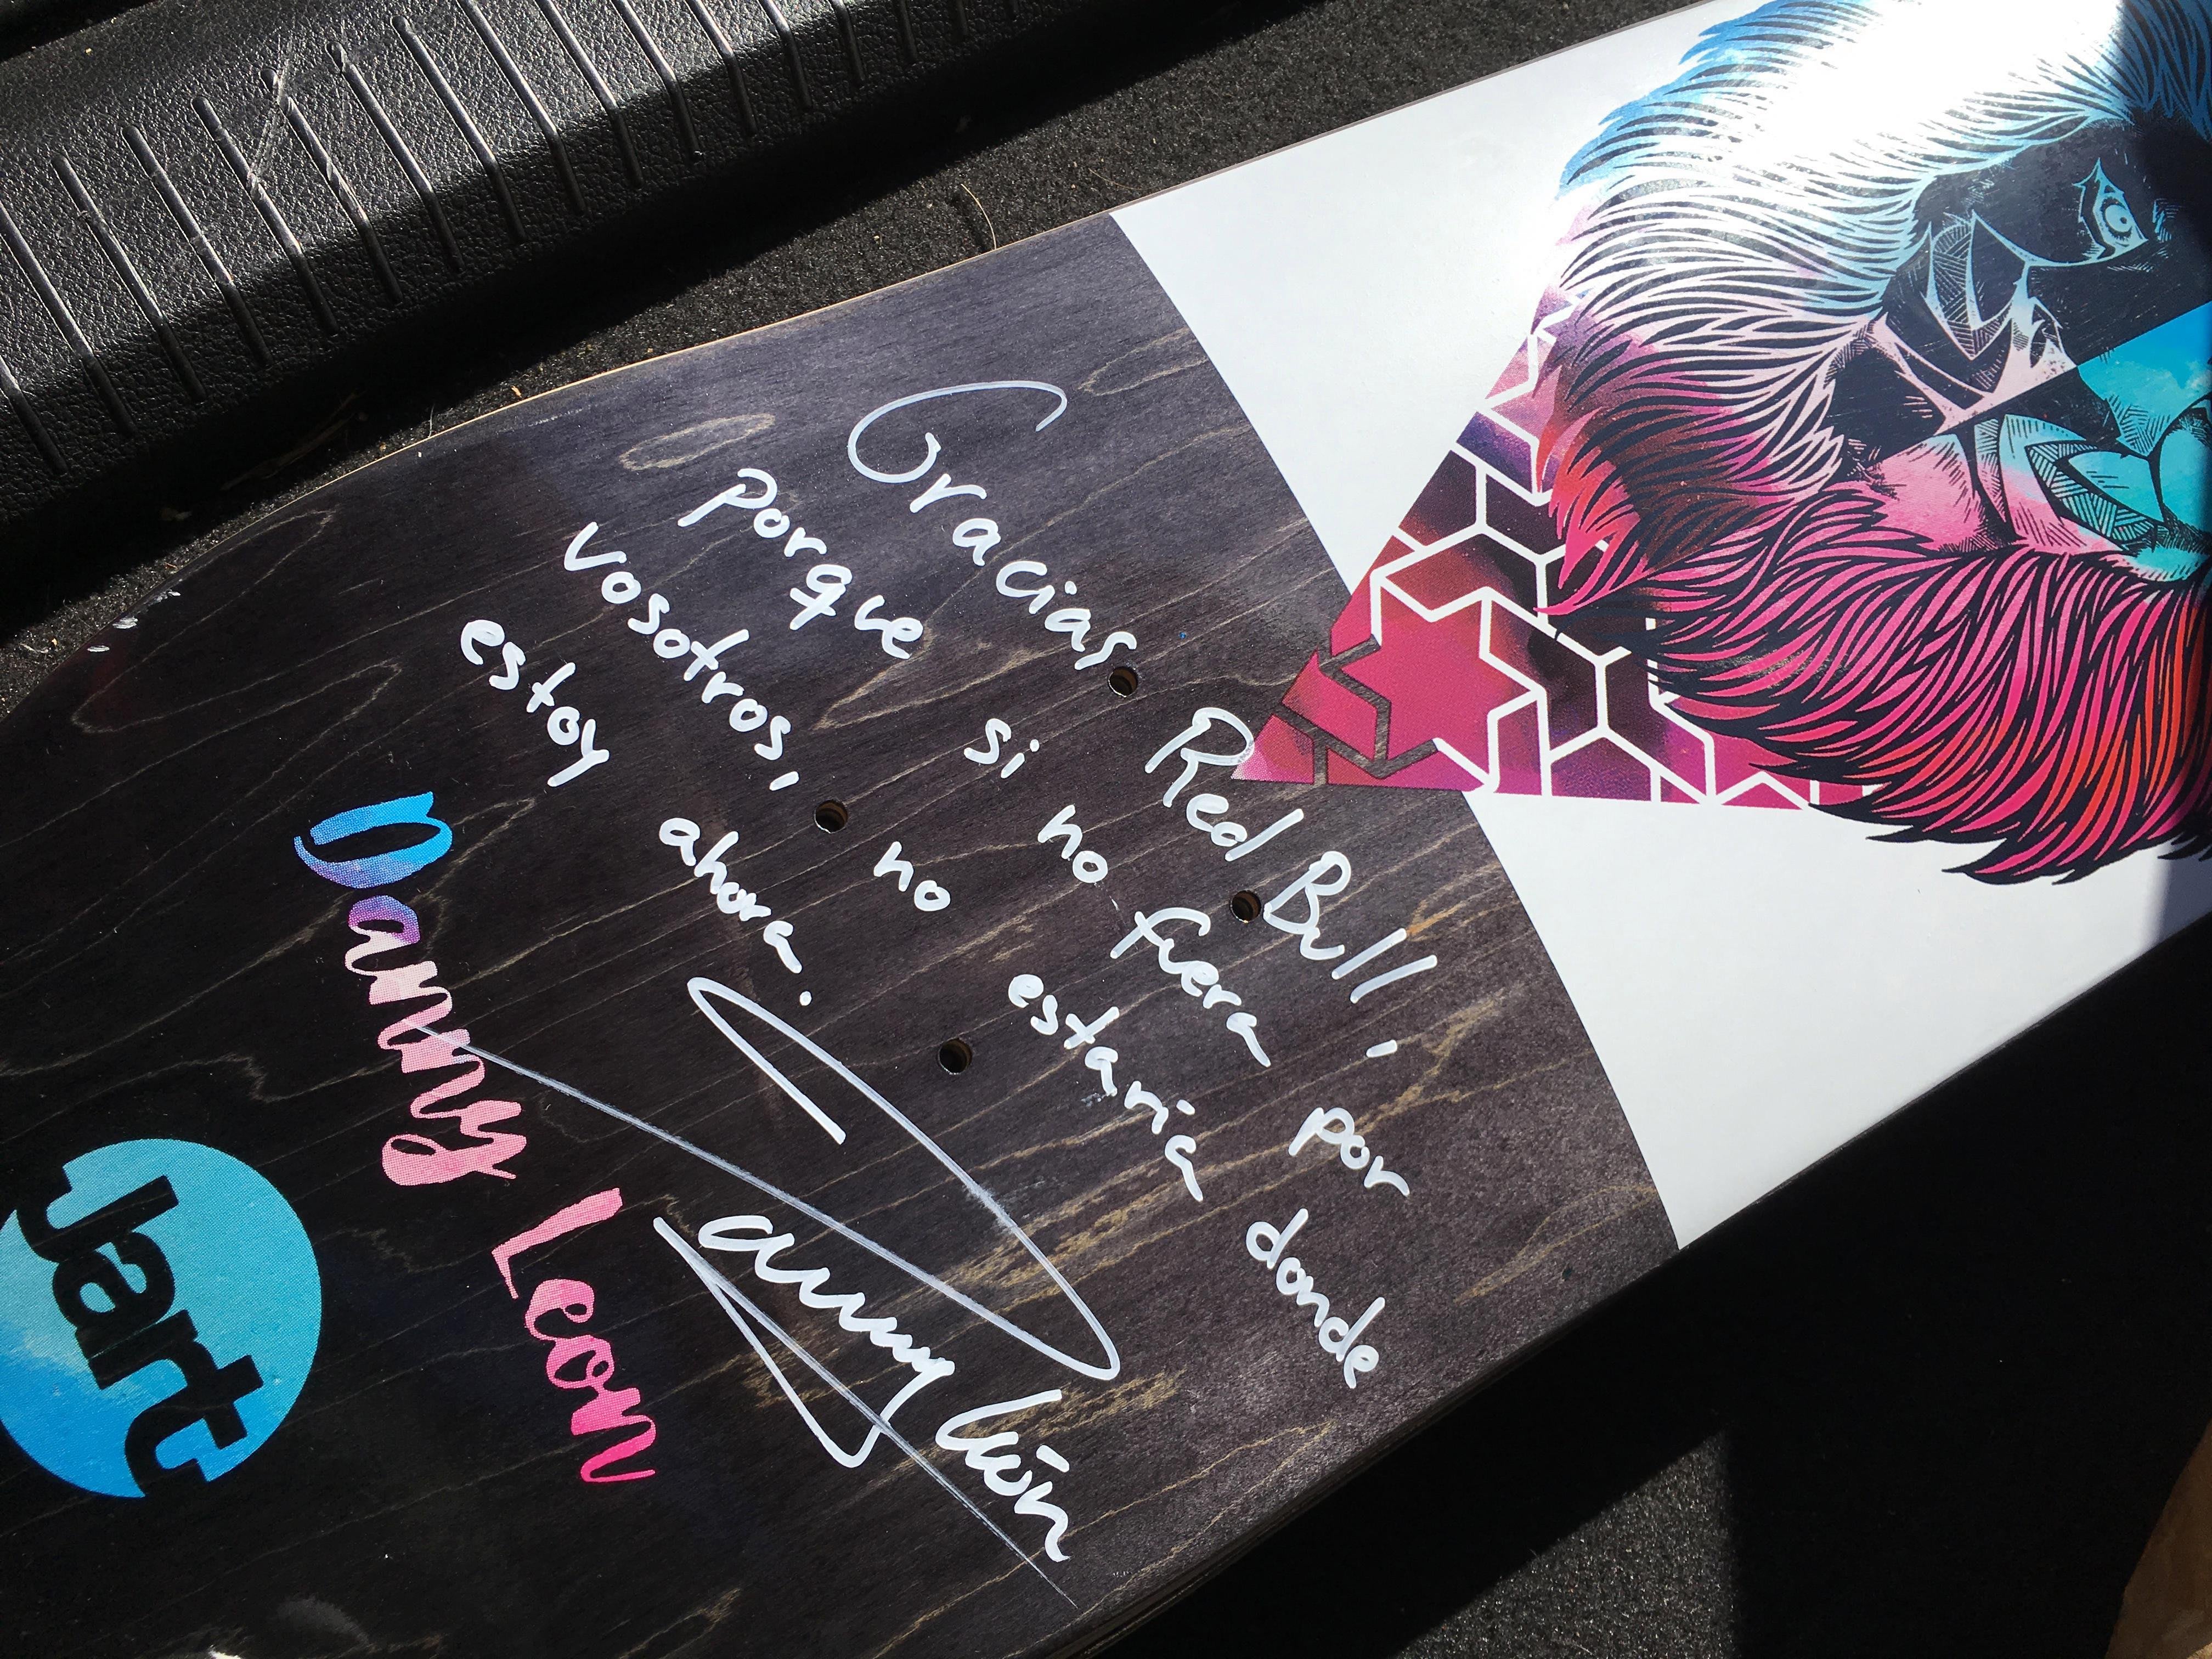 Gracias Red Bull,
porque si no fuera por
vosotros, no estaria donde
estoy ahora.
Danny León
Danny Leon
Jart